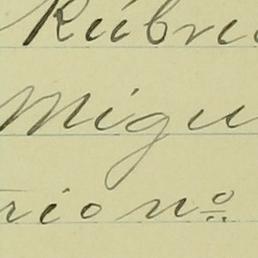 Rúbri
Migu
rio nº